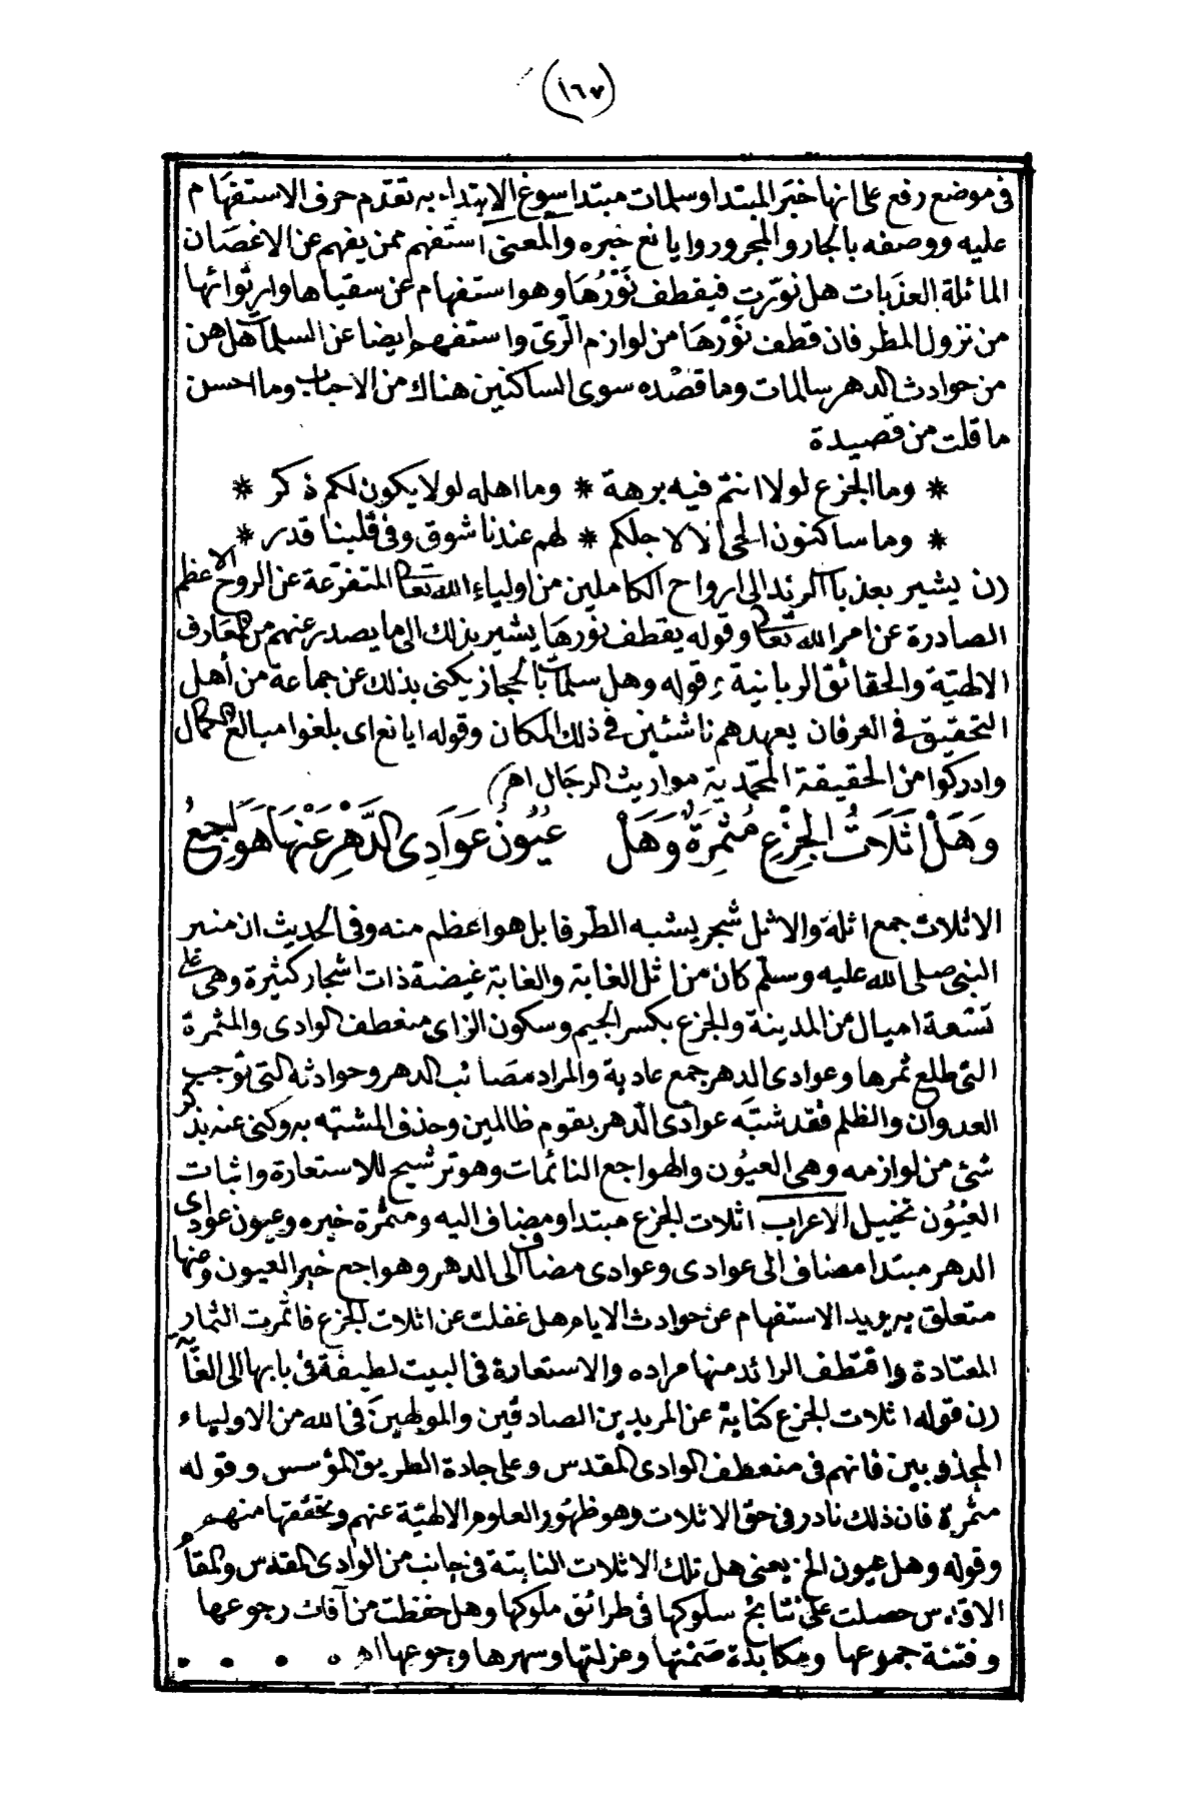 (١٦٧)
فى موضع رفع على انها خبر المبتدا وسلمات مبتدا سوغ الابتداء به تقدّم حرف الاستفهام
عليه ووصفه بالجار والمجرور وايانع خبره والمعنى استفهم ممن يفهم عن الاغصان
المائلة العذبات هل نوّرت فيقطف نَوْرُهَا وهو استفهام عن سقياها وارتوائها
من نزول المطر فان قطف نَوْرهَا من لوازم الرّىّ واستفهم ايضا عن السلمات هل هن
من حوادث الدهر سالمات وما قصْده سوى الساكنين هناك من الاحباب وما احسن
ما قلت من قصيدة
* وما الجزع لولا انتم فيه برهة * وما اهله لولا يكون لكم ذكر *
* وما ساكنون الحى الا لاجلكم * لهم عندنا شوق وفى قلبنا قدر *
(ن) يشير بعذبات الرند الى ارواح الكاملين من اولياء الله تعالى المتفرّعة عن الروح الاعظم
الصادرة عن امر الله تعالى وقوله يقطف نورها يشير بذلك الى ما يصدر عنهم من المعارف
الالهيّة والحقائق الربانية وقوله وهل سلمات بالحجاز يكنى بذلك عن جماعة من أهل
التحقيق فى العرفان يعهدهم ناشئين فى ذلك المكان وقوله ايانع اى بلغوا مبالغ الكمال
وادركوا من الحقيقة المحمّدية مواريث الرجال اهـ
وَهَلْ اَثَلَاتُ الجِزْعِ مُثْمِرَةٌ وَهَلْ عُيُونُ عَوَادِى الدَّهْرِ عَنْهَا هَوَاجِعُ
الاثلات جمع اثلة والاثل شجر يشبه الطرفا بل هو اعظم منه وفى الحديث ان منبر
النبى صلى الله عليه وسلّم كان من اثل الغابة والغابة غيضة ذات اشجار كثيرة وهى على
تسعة اميال من المدينة والجزع بكسر الجيم وسكون الزاى منعطف الوادى والمثمرة
التى طلع ثمرها وعوادى الدهر جمع عادية والمراد مصائب الدهر وحوادثه التى توجب
العدوان والظلم فقد شبّه عوادى الدهر بقوم ظالمين وحذف المشبه به وكنى عنه بذكر
شئ من لوازمه وهى العيُون والهواجع النائمات وهو ترشيح للاستعارة واثبات
العُيُون تخييل الاعراب اثلات الجزع مبتدا ومضاف اليه ومثمرة خبره وعيون عوادى
الدهر مبتدا مضاف الى عوادى وعوادى مضاف الى الدهر وهواجع خبر العيون وعنها
متعلق به يريد الاستفهام عن حوادث الايام هل غفلت عن اثلات الجزع فاثمرت الثمار
المعتادة واقتطف الرائد منها مراده والاستعارة فى البيت لطيفة فى بابها الى الغاية
(ن) قوله اثلات الجزع كناية عن المريدين الصادقين والمولهين فى الله من الاولياء
المجذوبين فانهم فى منعطف الوادى المقدس وعلى جادة الطريق المؤسس وقوله
مثمرة فان ذلك نادر فى حق الاثلات وهو ظهُور العلوم الالهيّة عنهم وتحققها منهم
وقوله وهل عيون الخ يعنى هل تلك الاثلات النابتة فى جانب من الوادى المقدس والمقام
الاقدس حصلت على نتائج سلوكها فى طرائق ملوكها وهل حفظت من آفات رجوعها
وفتنة جموعها ومكابدة صَمْتها وعزلتها وسهرها وجوعها اهـ